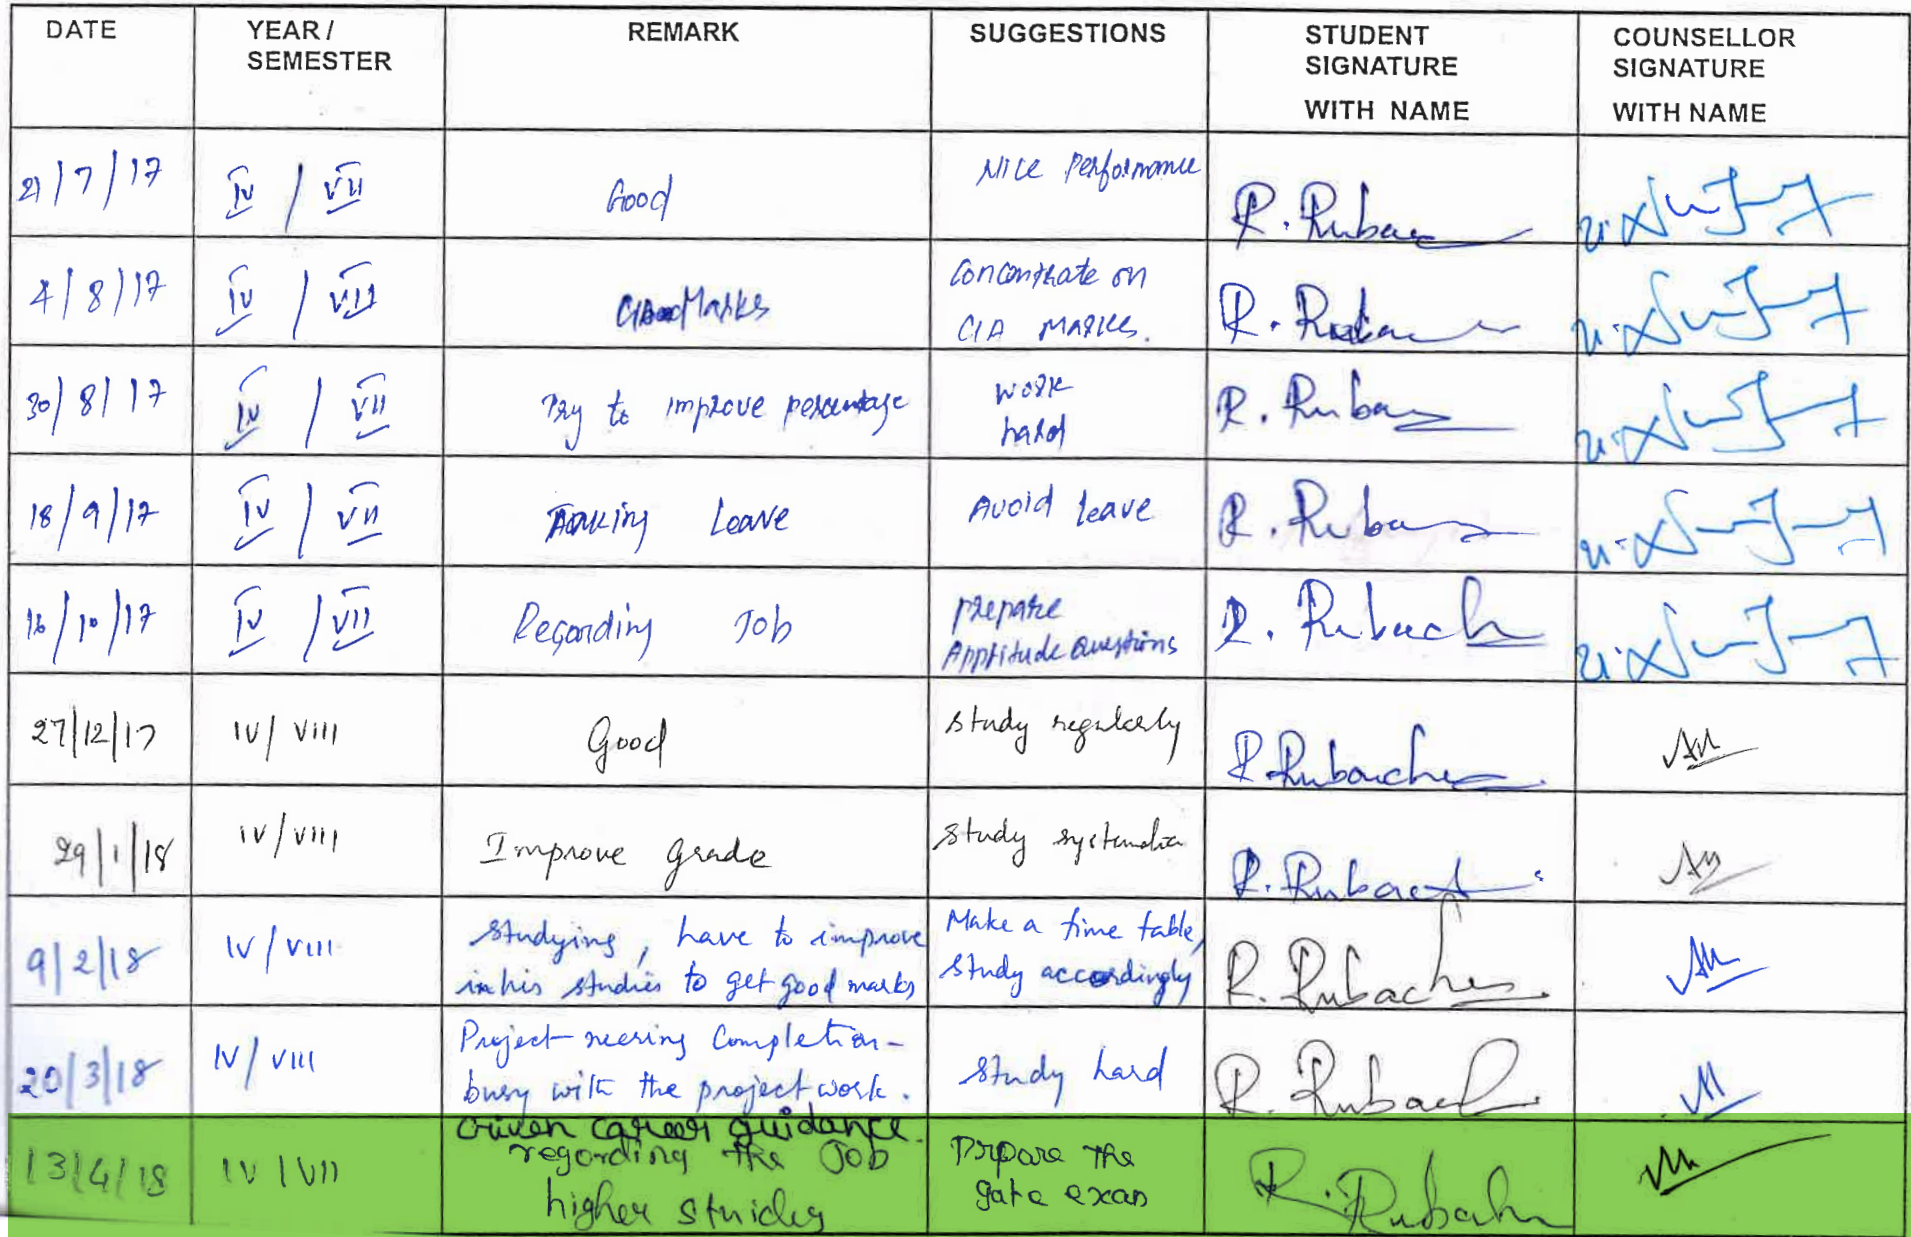 DATE YEAR / SEMESTER REMARK SUGGESTIONS STUDENT SIGNATURE WITH NAME COUNSELLOR SIGNATURE WITH NAME
21/7/17 IV / VII Good Nice Performance R. Ruba
4/8/17 IV / VII Marks Concentrate on CIA Marks. R. Ruba
30/8/17 IV / VII Try to improve percentage work hard R. Ruba
18/9/17 IV / VII Taking Leave Avoid leave R. Ruba
16/10/17 IV / VII Regarding Job prepare Apptitude Questions R. Rubach
27/12/17 IV / VIII Good study regularly R. Rubache
29/1/18 IV / VIII Improve grade study systematic R. Rubach
9/2/18 IV / VIII studying, have to improve in his studies to get good marks Make a time table, study accordingly R. Rubaches
20/3/18 IV / VIII Project neering Completion - busy with the project work. study hard R. Rubach
13/4/18 IV / VII Given career guidance. regording the Job higher studies Prpare the gate exam R. Rubach